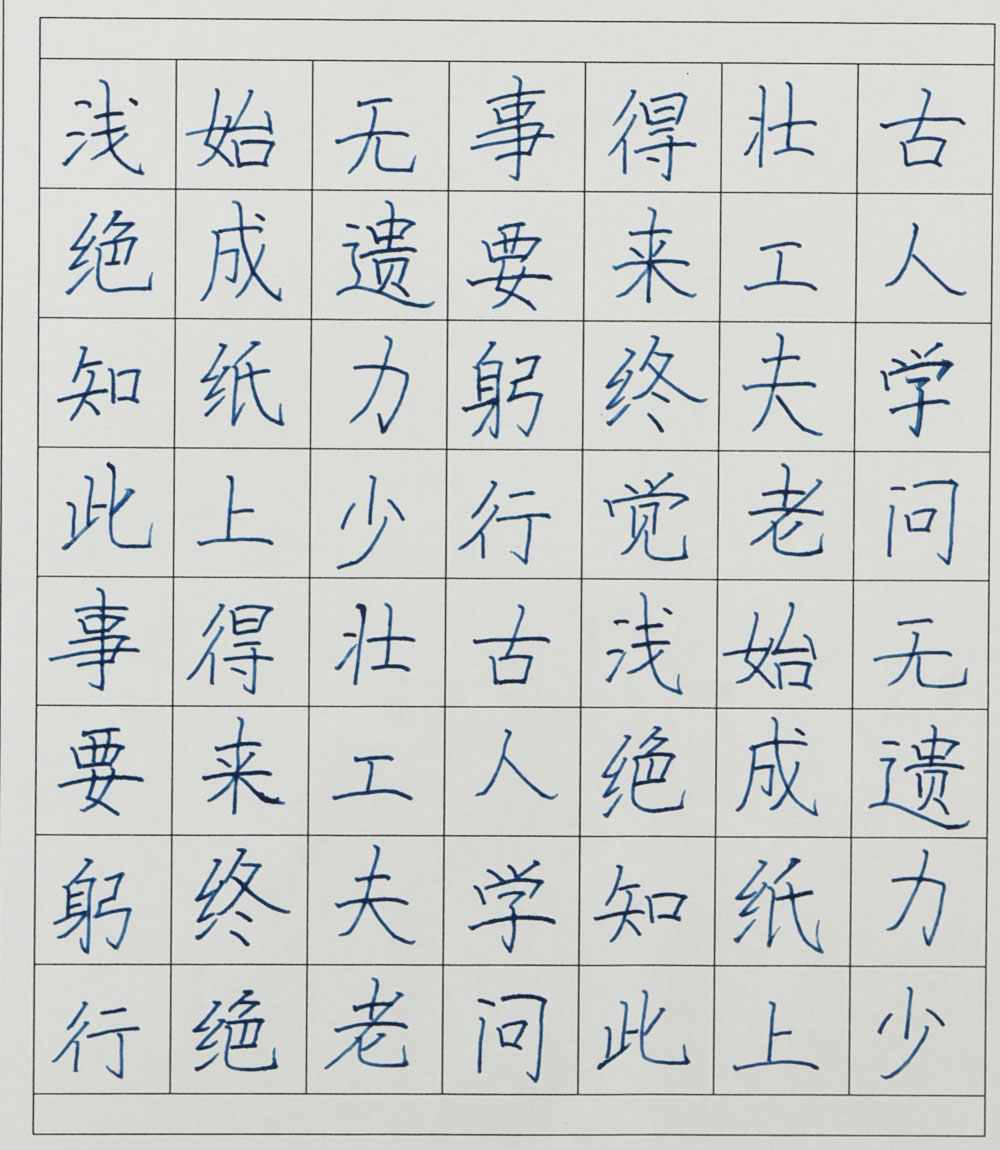 古人学问无遗力少
壮工夫老始成纸上
得来终觉浅绝知此
事要躬行古人学问
无遗力少壮工夫老
始成纸上得来终绝
浅绝知此事要躬行